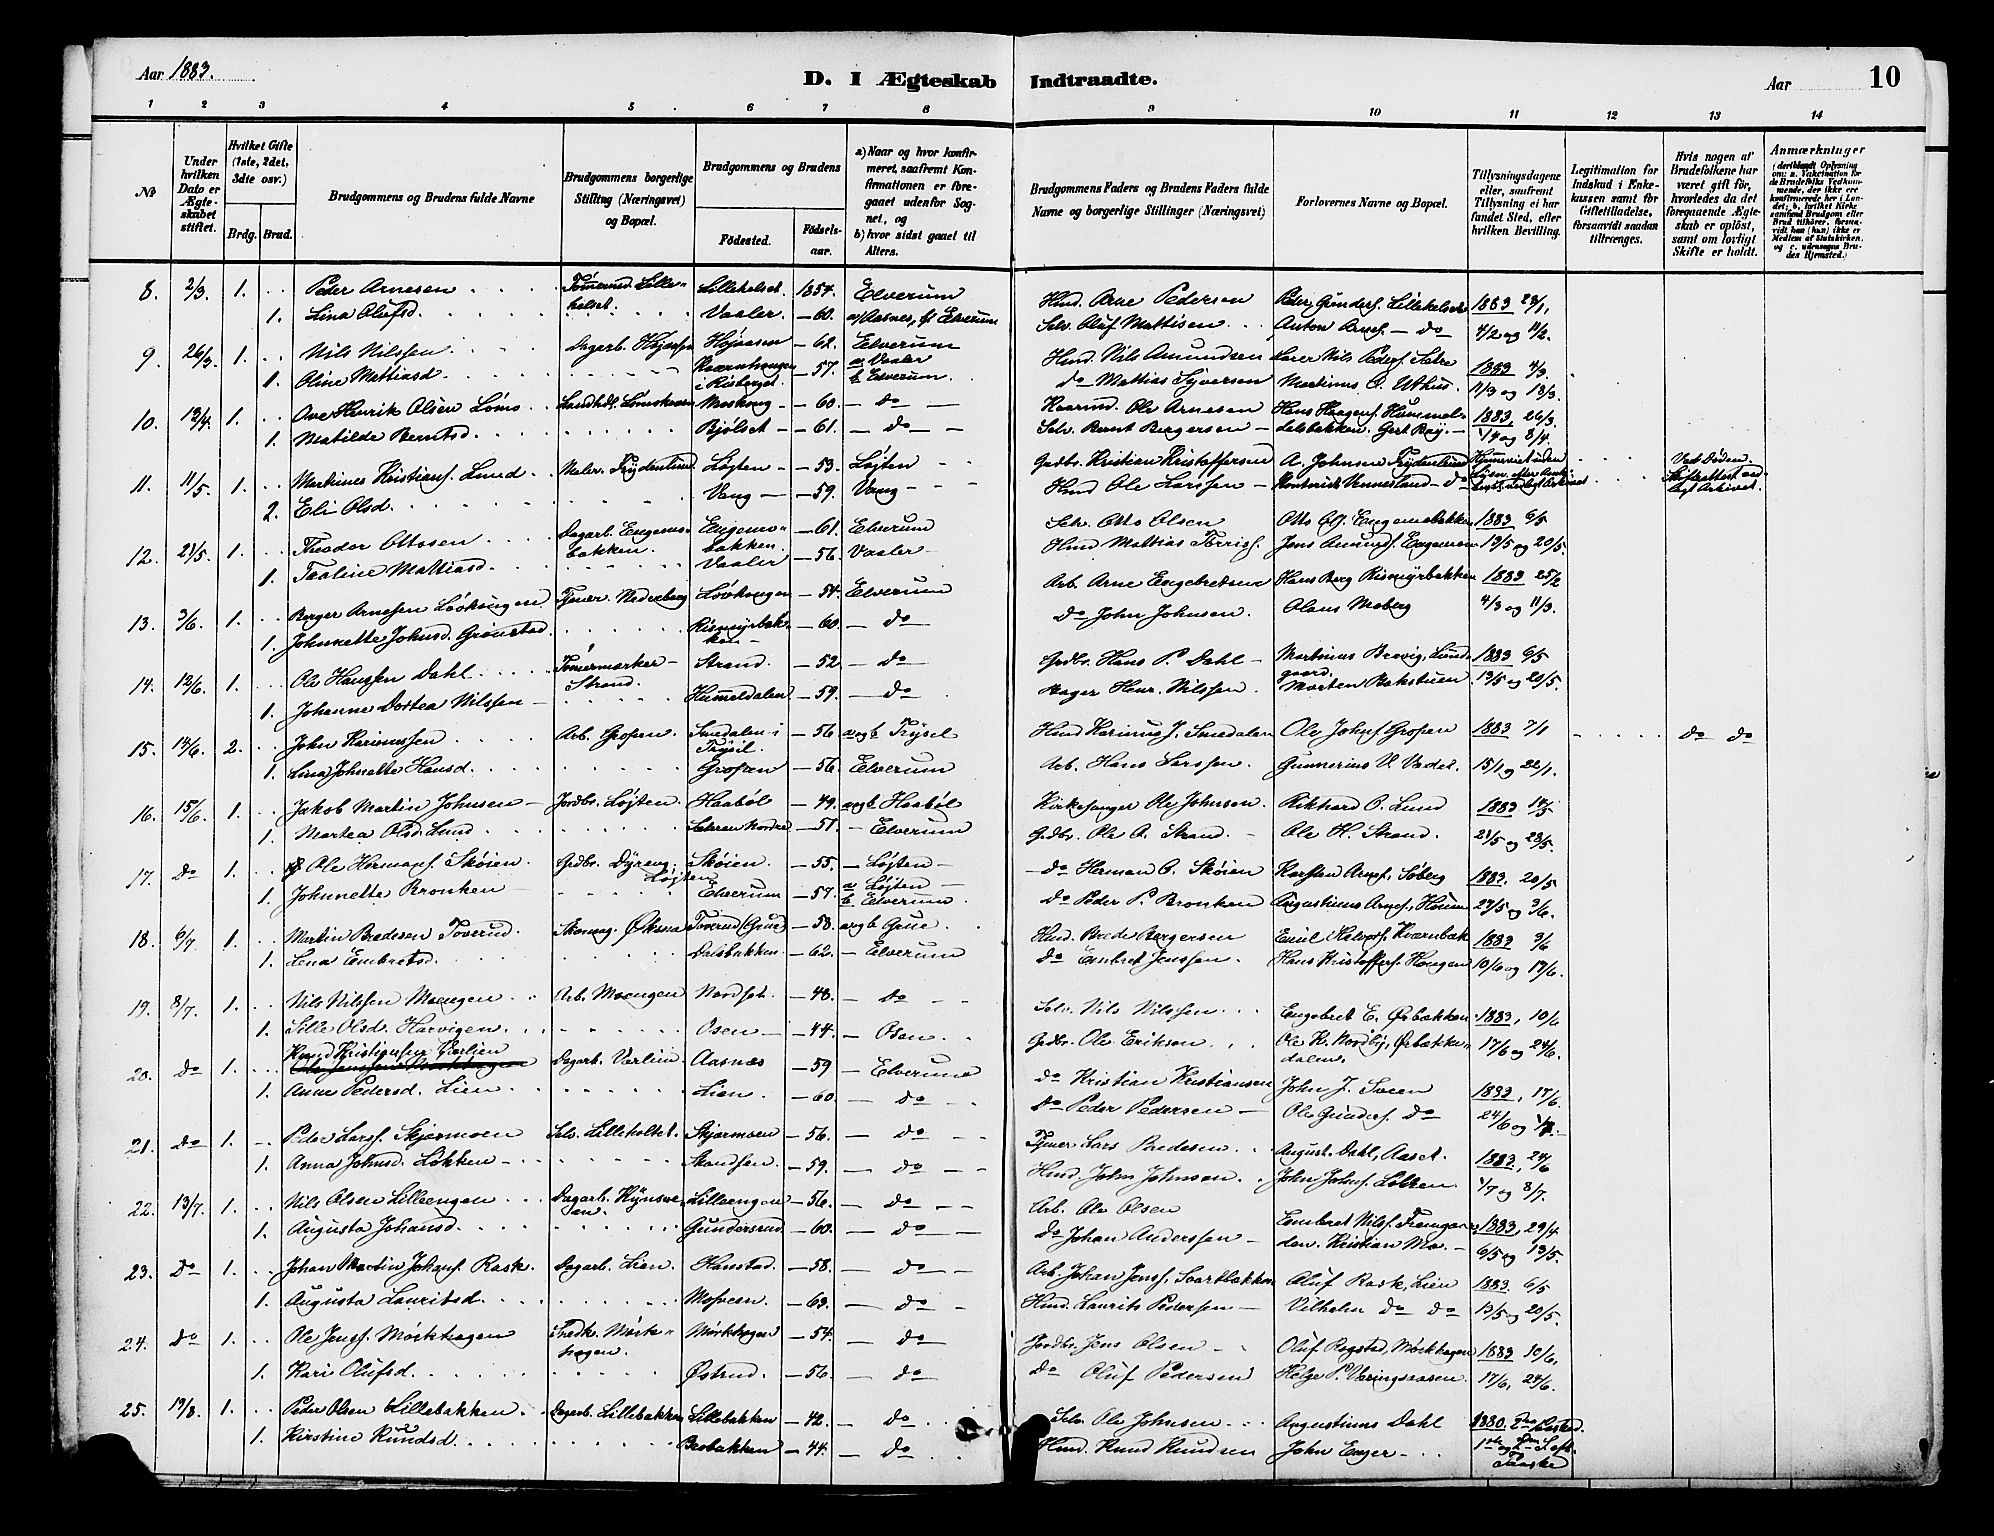 Aar 1883.
D. I Ægteskab Indtraadte.
Aar 10
1 2 3 4 5 6 7 8 9 10 11 12 13 14
No
Under hvilken Dato er Ægteskabet stiftet.
Hvilket Gifte (1ste, 2det, 3die osv.)
Brdg. Brud.
Brudgommens og Brudens fulde Navne
Brudgommens borgerlige Stilling (Næringsvei) og Bopæl.
Brudgommens og Brudens
Fødested.
Fødselsaar.
a) Naar og hvor konfirmeret, saafremt Konfirmationen er foregaaet udenfor Sognet, og
b) hvor sidst gaaet til Alters.
Brudgommens Faders og Brudens Faders fulde Navne og borgerlige Stillinger (Næringsvei)
Forlovernes Navne og Bopæl.
Tillysningsdagene eller, saafremt Tillysning ei har fundet Sted, efter hvilken Bevilling.
Legitimation for Indskud i Enkekassen samt for Giftetilladelse, forsaavidt saadan tiltrænges.
Hvis nogen af Brudefolkene har været gift før, hvorledes da det foregaaende Ægteskab er opløst, samt om lovligt Skifte er holdt.
Anmærkninger
8. 2/3. 1. Peder Arnesen Lilleholset 1854. Elverum Hmd. Arne Pedersen Peder Gunders. Lilleholset 1883 28/1,
1. Lina Olufsd. Vaaler 60. a) Aasnes, b) Elverum Selv. Oluf Mattisen Anton Arnes. do 4/2 og 11/2.
9. 26/3. 1. Nils Nilssen Dagarb. Højaasen Højaasen 62. Elverum Hmd. Nils Amundsen Lærer Nils Peders. Sætre 1883 4/3.
1. Oline Mattiasd. 57. a) Vaaler b) Elverum. do Mattias Syversen Martinus O. Uthus. 11/3 og 18/3.
10. 13/4. 1. Ove Henrik Olsen Lømo Moskoug 60. do Ole Arnesen Hans Haagens. Hummeldalsbakken. 1883. 26/3.
1. Matilde Berntsd. Bjølset 61. do Selv. Bernt Bergersen Gert Bay. 1/4 og 8/4.
11. 11/5. 1. Martinus Kristians. Lund Maler. Frydenlund Løjten 53. Løjten Gaardbr. Kristian Kristoffersen A. Johnsen Frydenlund Ved Døden.
2. Eli Olsd. Vang 59. Vang Hmd Ole Larssen do
12. 21/5. 1. Theodor Ottosen Dagarb. Engemobakken. Engemobakken. 61. Elverum Selv. Otto Olsen Otto Ols. Engemobakken 1883 6/5
1. Taaline Mattiasd. Vaaler 56. Vaaler Hmd Mattias Torris. Jens Amunds. Engemoen 13/5 og 20/5.
13. 3/6. 1. Berger Arnesen Løvhaugen Tjener. Nederberg Løvhaugen 54. Elverum Arb. Arne Engebretsen Hans Berg Rismyrbakken 1883 25/2
1. Johnette Johnsd. Grønstad Rismyrbakken 60. do do John Johnsen. Olaus Moberg 4/3 og 11/3.
14. 12/6. 1. Ole Hanssen Dahl Tømermærker Strand. Strand. 52. do Gaardbr. Hans P. Dahl Martinus Brevig, Lundgaard. 1883 6/5
1. Johanne Dortea Nilssen Hummeldalen 59. do Bager Henr. Nilssen. Morten Bakstuen 13/5 og 20/5.
15. 14/6. 2. John Karinussen Arb. Grosen. Smedalen i Trysil. 56. a og b Trysil Hmd Karinus J. Smedalen Ole Johns. Grosen 1883 7/1 do do
1. Lina Johnette Hansd. Grosen 56. Elverum Arb. Hans Larssen Gunnerius V. Vadet. 15/1 og 22/1.
16. 15/6. 1. Jakob Martin Johnsen Jordbr. Løjten. Haabøl 49. a og b Haabøl Kirkesanger Ole Johnsen. Rikhard O. Lund 1883 14/5
1. Martea Olsd. Lund Sætren Nordre 51. Elverum Gaardbr. Ole A. Strand. Ole H. Strand. 21/5 og 28/5.
17. do 1. Ole Hermans. Skøien Gaardbr. Dyreng. Løjten Skøien. 55. Løjten do Herman O. Skøien Karsten Arnes. Søberg 1883. 20/5
1. Johnette Bronken Elverum 57. a Løjten b. Elverum. do Peder P. Bronken Augustinus Arnes. 27/5 og 3/6.
18. 6/7 1. Martin Bredesen Toverud. Skomag. Øksna Toverud (Grue) 58. a og b Grue. Hmd. Brede Bergersen Emil Halvors. Kværnbæk 1883 3/6
1. Lena Embretsd. Dalsbakken 62. Elverum do Embret Jenssen. Hans Kristoffers. Haugen 10/6 og 17/6.
19. 8/7. 1. Nils Nilssen Moengen Arb. Moengen Nordset. 48. do Selv. Nils Nilssen Engebret E. Ørbækken 1883, 10/6
1. Sille Olsd. Harvigen. Osen 44. Osen. Gaardbr. Ole Eriksen Ole K. Nordby, Ørbækkedalen. 17/6 og 24/6.
20. do 1. Knud Kristiansen Værlien Dagarb. Værlien Aasnæs 59 Elverum do Kristian Kristiansen John J. Sveen 1883, 17/6.
1. Anne Pedersd. Lien. Lien. 60. do do Peder Pedersen Ole Gunders. do 24/6 og 1/7.
21. do 1. Peder Lars. Skjærmoen Selv. Lilleholtet. Skjærmoen 56. do Tjener Lars Bredesen August. Dahl, Aaset. 1883, 24/6
1. Anna Johnsd. Løkken 59. do Hmd. John Johnsen John Johns. Løkken. 1/7 og 8/7.
22. 13/7. 1. Nils Olsen Lilleengen Dagarb. Lilleengen 56. do Arb. Ole Olsen Embret Nils. 1883, 29/4
1. Augusta Johansd. Gundersrud 60. do do Johan Anderssen Kristian Mo. 6/5 og 13/5.
23. do 1. Johan Martin Johans. Rask Dagarb. Lien. Hanstad. 58. do Arb. Johan Jens. Svartbakken Oluf Rask, Lien 1883 6/5
1. Augusta Lauritsd. Mosveen. 63. do Hmd. Laurits Pedersen Vilhelm do do 13/5 og 20/5.
24. do 1. Ole Jens. Mørkhagen Snedk. Mørkhagen. Mørkhagen 54. do Jordbr. Jens Olsen Oluf Rogstad, Mørkhagen 1883 10/6,
1. Kari Olufsd. Østrud. 56. do do Oluf Pedersen Helge P. Væringsaasen. 17/6, 24/6.
25. 19/8. 1. Peder Olsen Lillebakken Dagarb. Lillebakken Lillebakken 42. do Selv. Ole Johnsen Augustinus Dahl 1880.
1. Kirstine Knudsd. Berbakken 44. do Hmd. Knud Knudsen John Enger Paaske